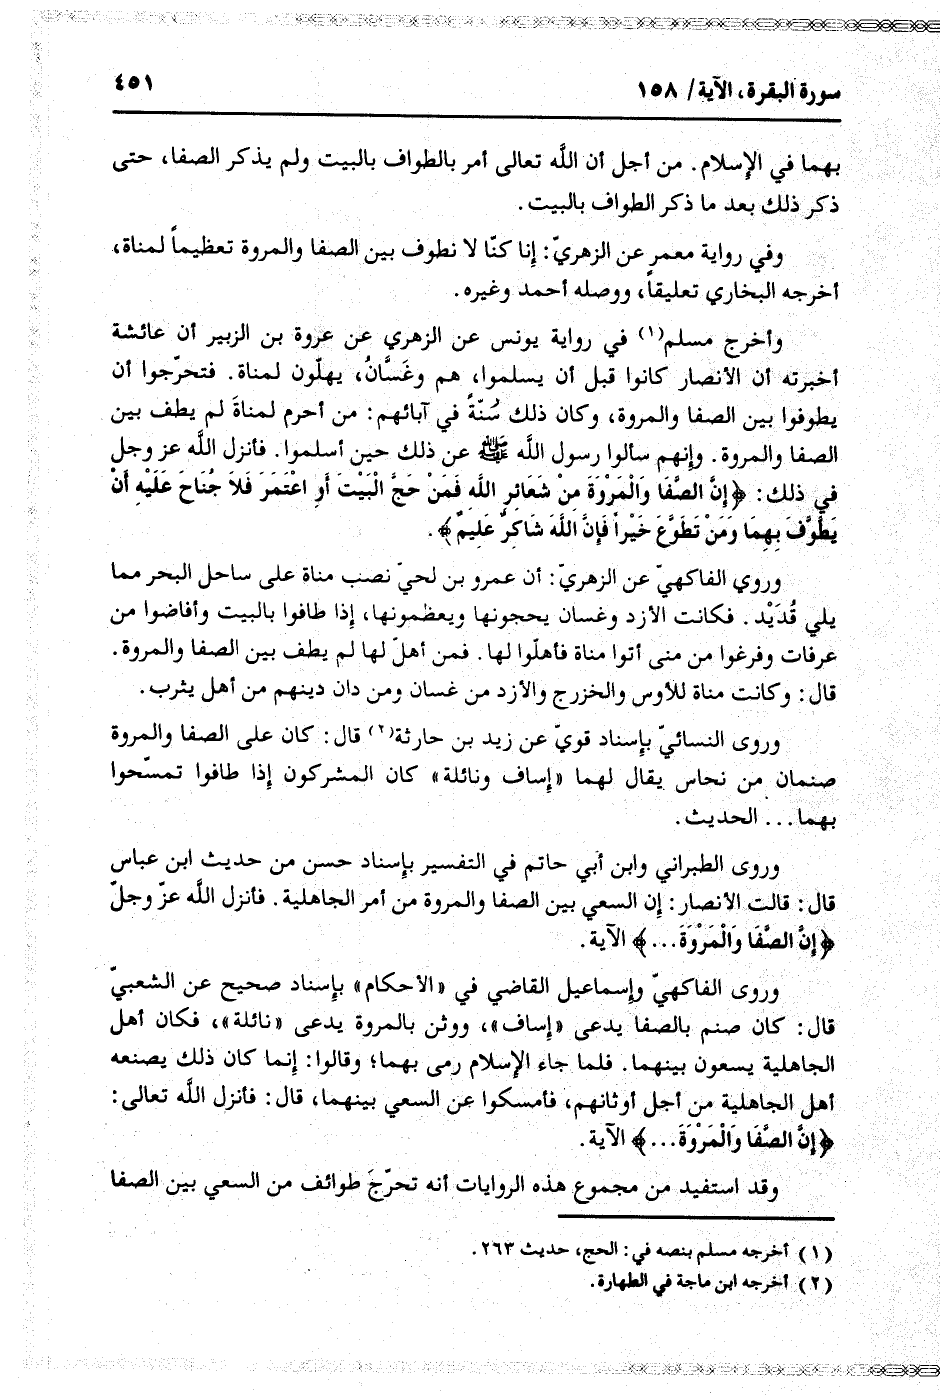 سورة البقرة، الآية/ ١٥٨
٤٥١
بهما في الإسلام. من أجل أن اللَّه تعالى أمر بالطواف بالبيت ولم يذكر الصفا، حتى
ذكر ذلك بعد ما ذكر الطواف بالبيت.
وفي رواية معمر عن الزهريّ: إنا كنّا لا نطوف بين الصفا والمروة تعظيماً لمناة،
أخرجه البخاري تعليقاً، ووصله أحمد وغيره.
وأخرج مسلم(١) في رواية يونس عن الزهري عن عروة بن الزبير أن عائشة
أخبرته أن الأنصار كانوا قبل أن يسلموا، هم وغَسَّانُ، يهلّون لمناة. فتحرّجوا أن
يطوفوا بين الصفا والمروة، وكان ذلك سُنّةً في آبائهم: من أحرم لمناةَ لم يطف بين
الصفا والمروة. وإنهم سألوا رسول اللَّه ﷺ عن ذلك حين أسلموا. فأنزل اللَّه عز وجل
في ذلك: ﴿إِنَّ الصَّفَا وَالْمَرْوَةَ مِنْ شَعَائِرِ اللَّهِ فَمَنْ حَجَّ الْبَيْتَ أَوِ اعْتَمَرَ فَلاَ جُنَاحَ عَلَيْهِ أَنْ
يَطَّوَّفَ بِهِمَا وَمَنْ تَطَوَّعَ خَيْراً فَإِنَّ اللَّهَ شَاكِرٌ عَلِيمٌ﴾.
وروي الفاكهيّ عن الزهريّ: أن عمرو بن لحيّ نصب مناة على ساحل البحر مما
يلي قُدَيْد. فكانت الأزد وغسان يحجونها ويعظمونها، إذا طافوا بالبيت وأفاضوا من
عرفات وفرغوا من منى أتوا مناة فأهلّوا لها. فمن أهلّ لها لم يطف بين الصفا والمروة.
قال: وكانت مناة للأوس والخزرج والأزد من غسان ومن دان دينهم من أهل يثرب.
وروى النسائيّ بإسناد قويّ عن زيد بن حارثة(٢) قال: كان على الصفا والمروة
صنمان من نحاس يقال لهما «إساف ونائلة» كان المشركون إذا طافوا تمسّحوا
بهما... الحديث.
وروى الطبراني وابن أبي حاتم في التفسير بإسناد حسن من حديث ابن عباس
قال: قالت الأنصار: إن السعي بين الصفا والمروة من أمر الجاهلية. فأنزل اللَّه عزّ وجلّ
﴿إِنَّ الصَّفَا وَالْمَرْوَةَ...﴾ الآية.
وروى الفاكهيّ وإسماعيل القاضي في «الأحكام» بإسناد صحيح عن الشعبيّ
قال: كان صنم بالصفا يدعى «إساف»، ووثن بالمروة يدعى «نائلة»، فكان أهل
الجاهلية يسعون بينهما. فلما جاء الإسلام رمى بهما؛ وقالوا: إنما كان ذلك يصنعه
أهل الجاهلية من أجل أوثانهم، فأمسكوا عن السعي بينهما، قال: فأنزل اللَّه تعالى:
﴿إِنَّ الصَّفَا وَالْمَرْوَةَ...﴾ الآية.
وقد استفيد من مجموع هذه الروايات أنه تحرّجَ طوائف من السعي بين الصفا
(١) أخرجه مسلم بنصه في: الحج، حديث ٢٦٣.
(٢) أخرجه ابن ماجة في الطهارة.